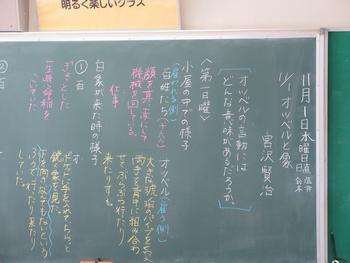 明るく楽しいクラス
11月1日木曜日
日直
鈴木
オツベルと象
宮沢賢治
オツベルの言動には
どんな意味があるだろうか。
〈第一日曜〉
小屋の中での様子
〈雇われる側〉
百姓たち
顔を真っ赤にして
機械を回している。
仕事
オツベル〈雇う側〉
大きな琥珀のパイプをくわえ
両手を背中に組み合わ
せ、ぶらぶら行ったり
来たりする。
白象が来た時の様子
① 百
ぎょっとした
一生けん命稲を
こいていた
オ
ちらっと
鋭く象を見た
ふうで行ったり来たり
していた。
② 百